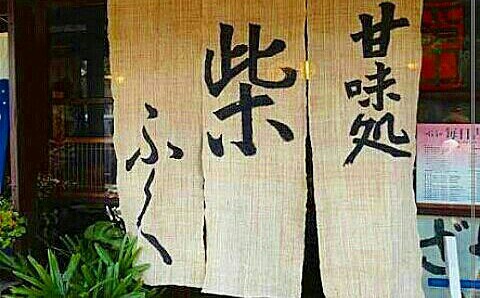 甘味処
柴
ふく
毎日
ざ